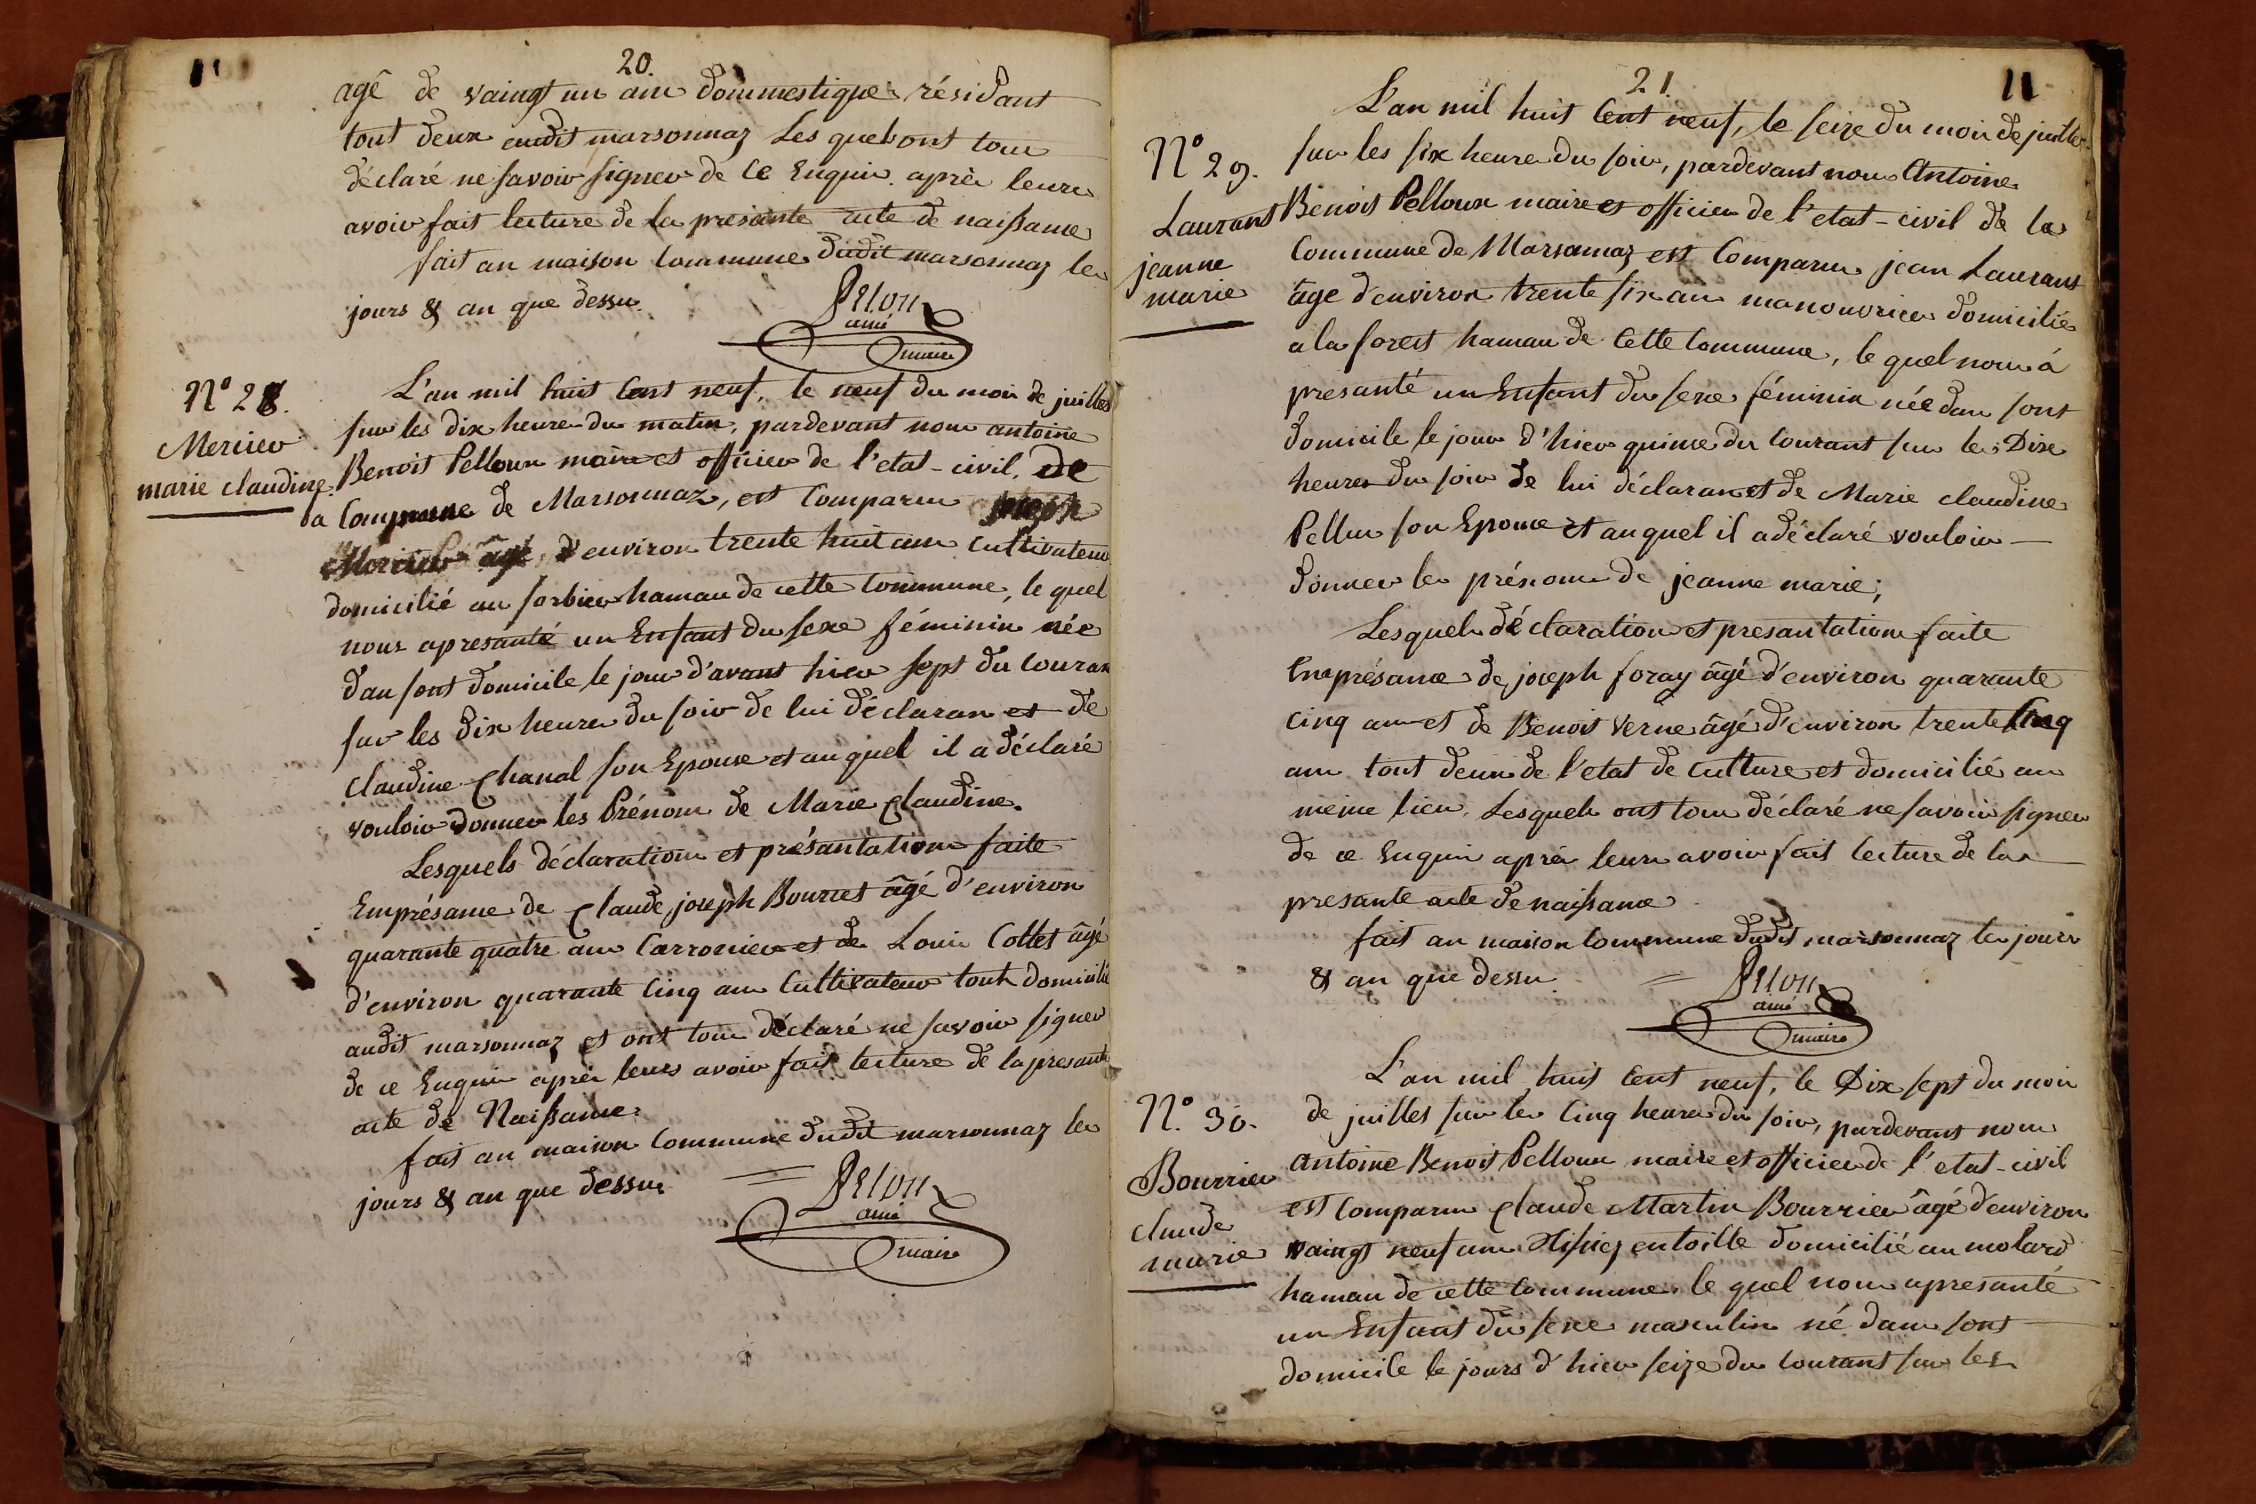 20.
agé de vaingt un ans dommestique résidant
tout deux audit marsonnaz Les quels ont tous
déclaré ne savoir signer de ce Enquis. après leurs
avoir fait lecture de la presante acte de naissance
fait an maison Commune dudit marsonnaz les
jours & an que dessus.
ainé
maire
N° 28.
Mercier
marie claudine
L'an mil huit Cent neuf, le neuf du mois de juillet
sur les dix heures du matin, pardevant nous antoine
Benoit Pelloux maire et officier de l'etat-civil. de
la Commune de Marsonnaz, est Comparu joseph
Mercier âgé, d'environ trente huit ans cultivateur
domicilié au sorbier hamau de cette Commune, le quel
nous apresanté un Enfant du sexe féminin née
dans sont domicile le jour d'avant hier sept du couran
sur les dix heures du soir de lui déclaran et de
claudine Chanal son Epouse et auquel il a déclaré
vouloir donner les Prénom de Marie Claudine.
Lesquels déclaration et présantation faite
Emprésance de Claude joseph Bourcet âgé d'environ
quarante quatre ans Carronier et de Louis Collet âgé
d'environ quarante Cinq ans Cultivateur touts domicilié
audit marsonnaz et ont tous déclaré ne savoir signer
de ce Enquis après leurs avoir fait lecture de la presante
acte de Naissance.
fait an maison Commune dudit marsonnaz les
jours & an que dessus
ainé
maire
21.
11
N° 29.
Laurant
jeanne
marie
L'an mil huit Cent neuf, le seize du mois de juillet
sur les six heures du soir, pardevant nous Antoine
Benoit Pelloux maire et officier de l'etat-civil de la
Commune de Marsonnaz est Comparu jean Laurant
âge d'environ trente six ans manouvrier domicilié
a la forest hamau de Cette Commune, le quel nous à
presanté un Enfant du sexe féminin née dans sont
domicile le jour d'hier quinze du Courant sur les Dix
heures du soir de lui déclaran et de Marie claudine
Pellus son Epouse et auquel il a déclaré vouloir
donner les prénom de jeanne marie;
Lesquels déclaration et presantation faite
Emprésance de joseph foray âgé d'environ quarante
cinq ans et de Benoit Verne âgé d'environ trente Cinq
ans tout deux de l'etat de culture et domicilié au
même lieu. Lesquels ont tous déclaré ne savoir signer
de ce Enquis après leurs avoir fait lecture de la
presante acte de naissance
fait an maison Commune dudit marsonnaz les jours
& an que dessus.
ainé
maire
N° 30.
Bourrier
claude
marie
L'an mil huit Cent neuf, le Dix sept du mois
de juillet sur les Cinq heures du soir, pardevant nous
antoine Benoit Pelloux maire et officier de l'etat-civil
est Comparu Claude Martin Bourrier âgé d'environ
vaingt neuf ans tissiez entoille domicilié au molard
hamau de cette Commune. le quel nous apresanté
un Enfant du sexe masculin né dans sont
domicile le jours d'hier seize du Courant sur les